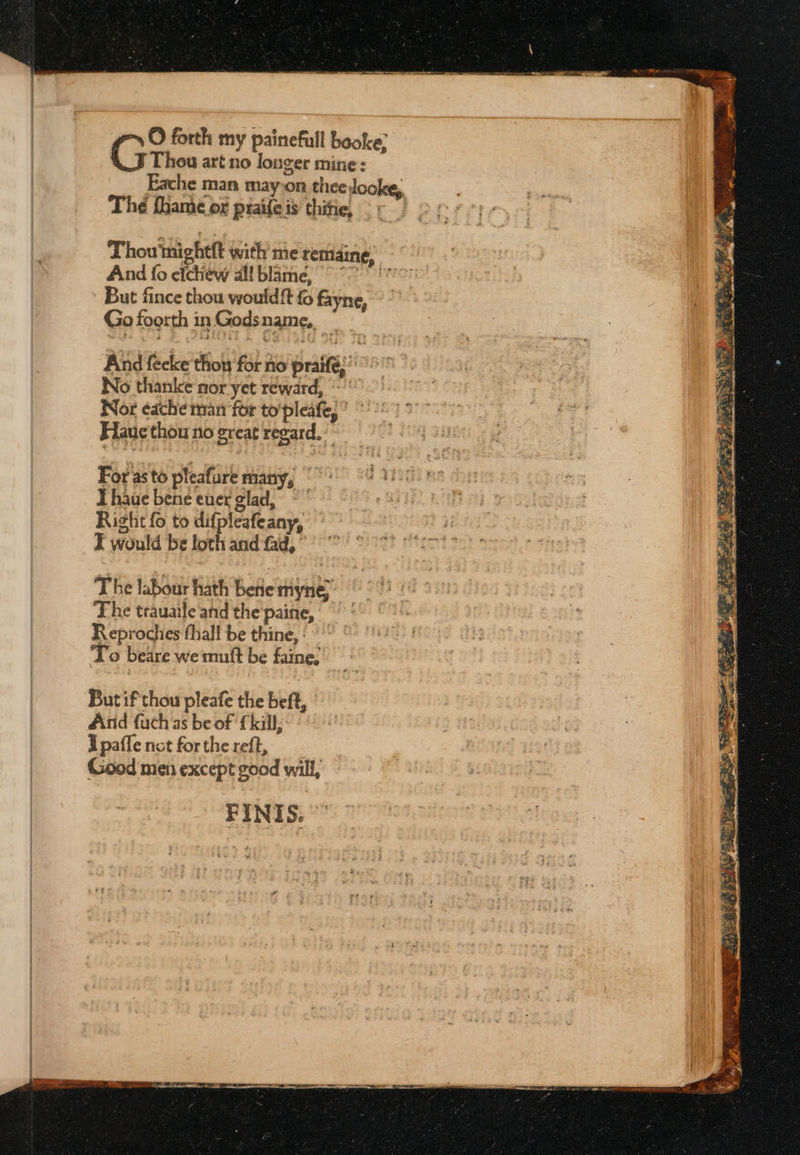 GO forth my painefull booke,
Thou art no longer mine:
Eache man may on thee looke,
The ſhame or praiſe is thine,
Thou mightſt with me remaine,
And ſo eſchew all blame,
But ſince thou wouldſt ſo fayne,
Go foorth in Gods name,
And ſeeke thou for no praiſe,
No thanke nor yet reward,
Nor eache man for to pleaſe,
Haue thou no great regard.
For as to pleaſure many,
I haue bene euer glad,
Right ſo to diſpleaſe any,
I would be loth and ſad,
The labour hath bene myne,
The trauaile and the paine,
Reproches ſhall be thine,
To beare we muſt be faine,
But if thou pleaſe the beſt,
And ſuch as be of ſkill,
I paſſe not for the reſt,
Good men except good will,
FINIS.